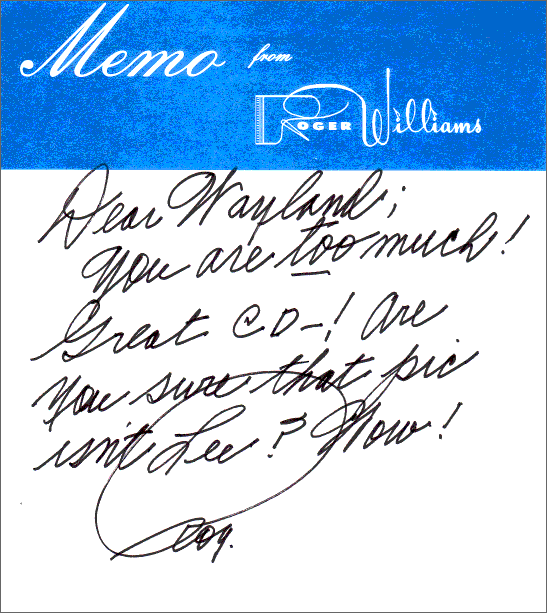 Memo from
ROGER Williams
Dear Wayland;
You are too much!
Great CD-! Are
you sure that pic
isn't Lee? Wow!
Rog.